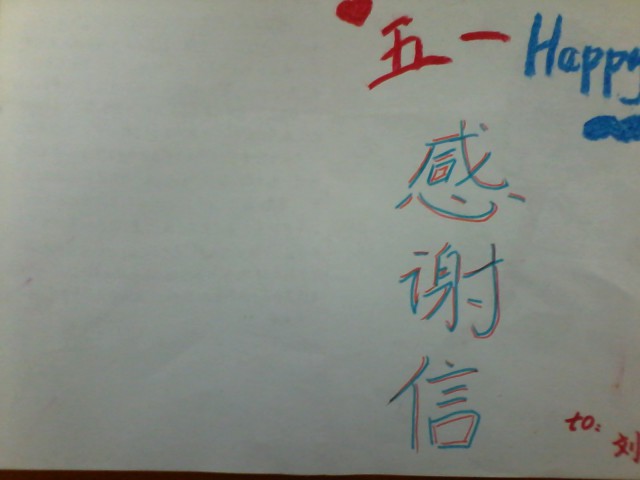 五一 Happy
感
谢
信
to:
刘